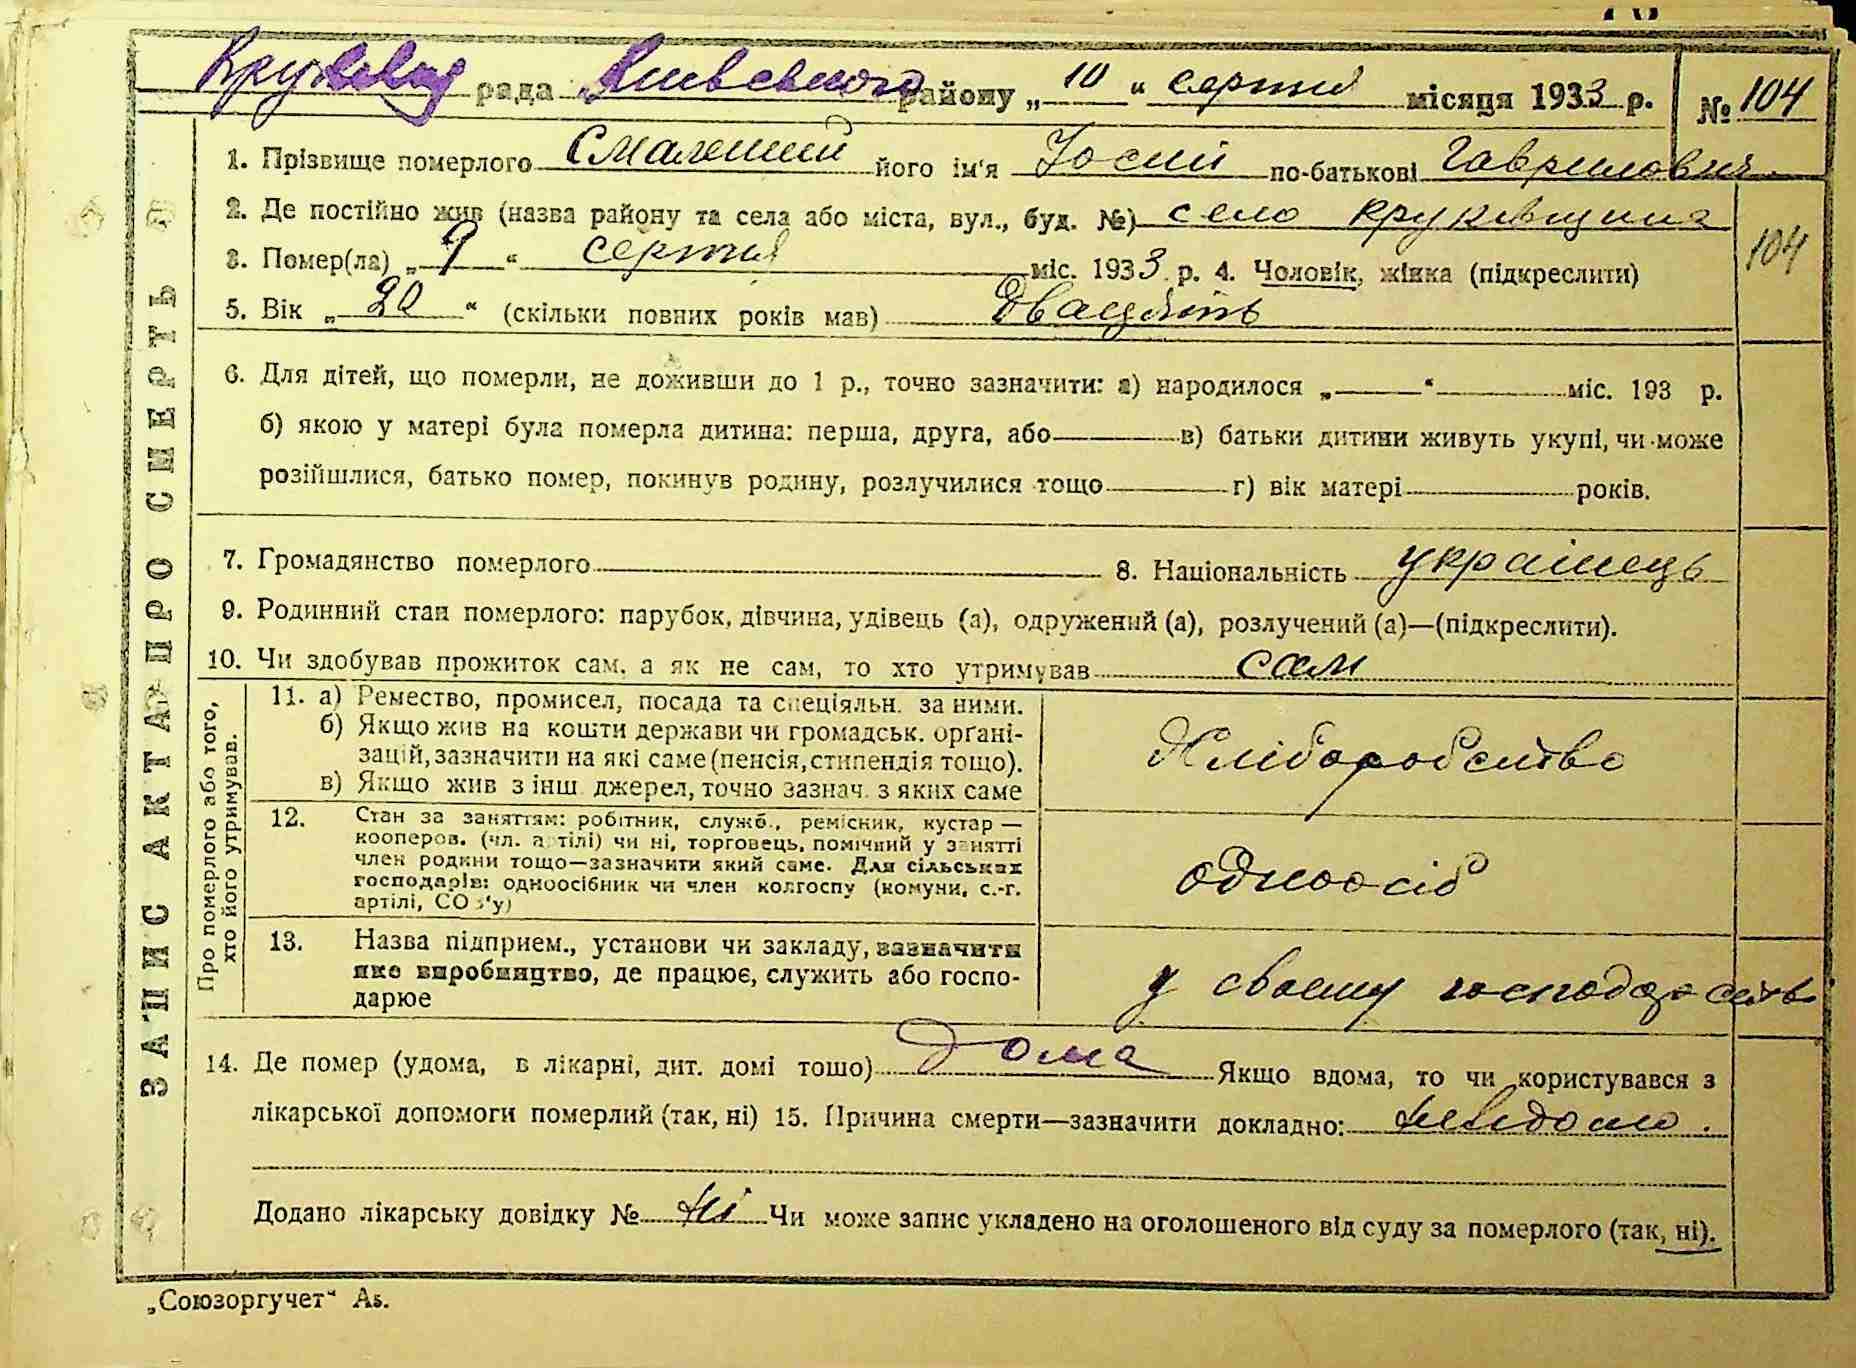 рада Київського району „ 10 “ серпня місяця 1933 р. № 104
ЗАПИС АКТА ПРО СМЕРТЬ
1. Прізвище померлого його ім'я Йосип по-батькові Гаврилович
2. Де постійно жив (назва району та села або міста, вул., буд. №) село Круківщина
104
3. Помер(ла) „ 9 “ серпня міс. 1933 р. 4. Чоловік, жінка (підкреслити)
5. Вік „ 20 “ (скільки повних років мав) двадцять
6. Для дітей, що померли, не доживши до 1 р., точно зазначити: а) народилося „ “ міс. 193 р.
б) якою у матері була померла дитина: перша, друга, або в) батьки дитини живуть укупі, чи може
розійшлися, батько помер, покинув родину, розлучилися тощо г) вік матері років.
7. Громадянство померлого 8. Національність українець
9. Родинний стан померлого: парубок, дівчина, удівець (а), одружений (а), розлучений (а)—(підкреслити).
10. Чи здобував прожиток сам, а як не сам, то хто утримував сам
Про померлого або того,
хто його утримував.
11. а) Ремество, промисел, посада та спеціяльн. за ними.
б) Якщо жив на кошти держави чи громадськ. орґані-
зацій, зазначити на які саме (пенсія, стипендія тощо).
в) Якщо жив з інш джерел, точно зазнач. з яких саме
Хліборобство
12. Стан за заняттям: робітник, служб., ремісник, кустар —
кооперов. (чл. артілі) чи ні, торговець, помічний у занятті
член родини тощо—зазначити який саме. Для сільських
господарів: одноосібник чи член колгоспу (комуни, с.-г.
артілі, СОЗ'у)
одноосіб
13. Назва підприєм., установи чи закладу, зазначити
яке виробництво, де працює, служить або госпо-
дарює
у своєму господарстві
14. Де помер (удома, в лікарні, дит. домі тощо) дома Якщо вдома, то чи користувався з
лікарської допомоги померлий (так, ні) 15. Причина смерти—зазначити докладно: невідомо.
Додано лікарську довідку № ні Чи може запис укладено на оголошеного від суду за померлого (так, ні).
„Союзоргучет“ А5.